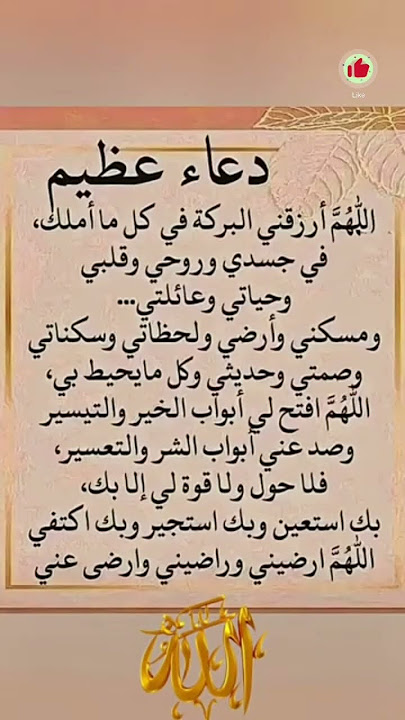 Like
دعاء عظيم
اللّٰهُمَّ أرزقني البركة في كل ما أملك،
في جسدي وروحي وقلبي
وحياتي وعائلتي...
ومسكني وأرضي ولحظاتي وسكناتي
وصمتي وحديثي وكل مايحيط بي،
اللّٰهُمَّ افتح لي أبواب الخير والتيسير
وصد عني أبواب الشر والتعسير،
فلا حول ولا قوة لي إلا بك،
بك استعين وبك استجير وبك اكتفي
اللّٰهُمَّ ارضيني وراضيني وارضى عني
الله